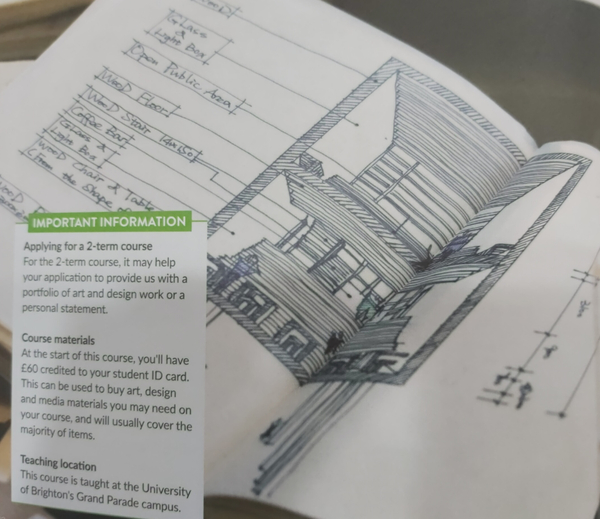 Glass
&
Light Box
Open Public Area
Wood Floor
Wood Stair
Coffee Bar
Glass &
Light Box
Wood Chair & Table
From the Shape
Wood
IMPORTANT INFORMATION
Applying for a 2-term course
For the 2-term course, it may help
your application to provide us with a
portfolio of art and design work or a
personal statement.
Course materials
At the start of this course, you'll have
£60 credited to your student ID card.
This can be used to buy art, design
and media materials you may need on
your course, and will usually cover the
majority of items.
Teaching location
This course is taught at the University
of Brighton's Grand Parade campus.